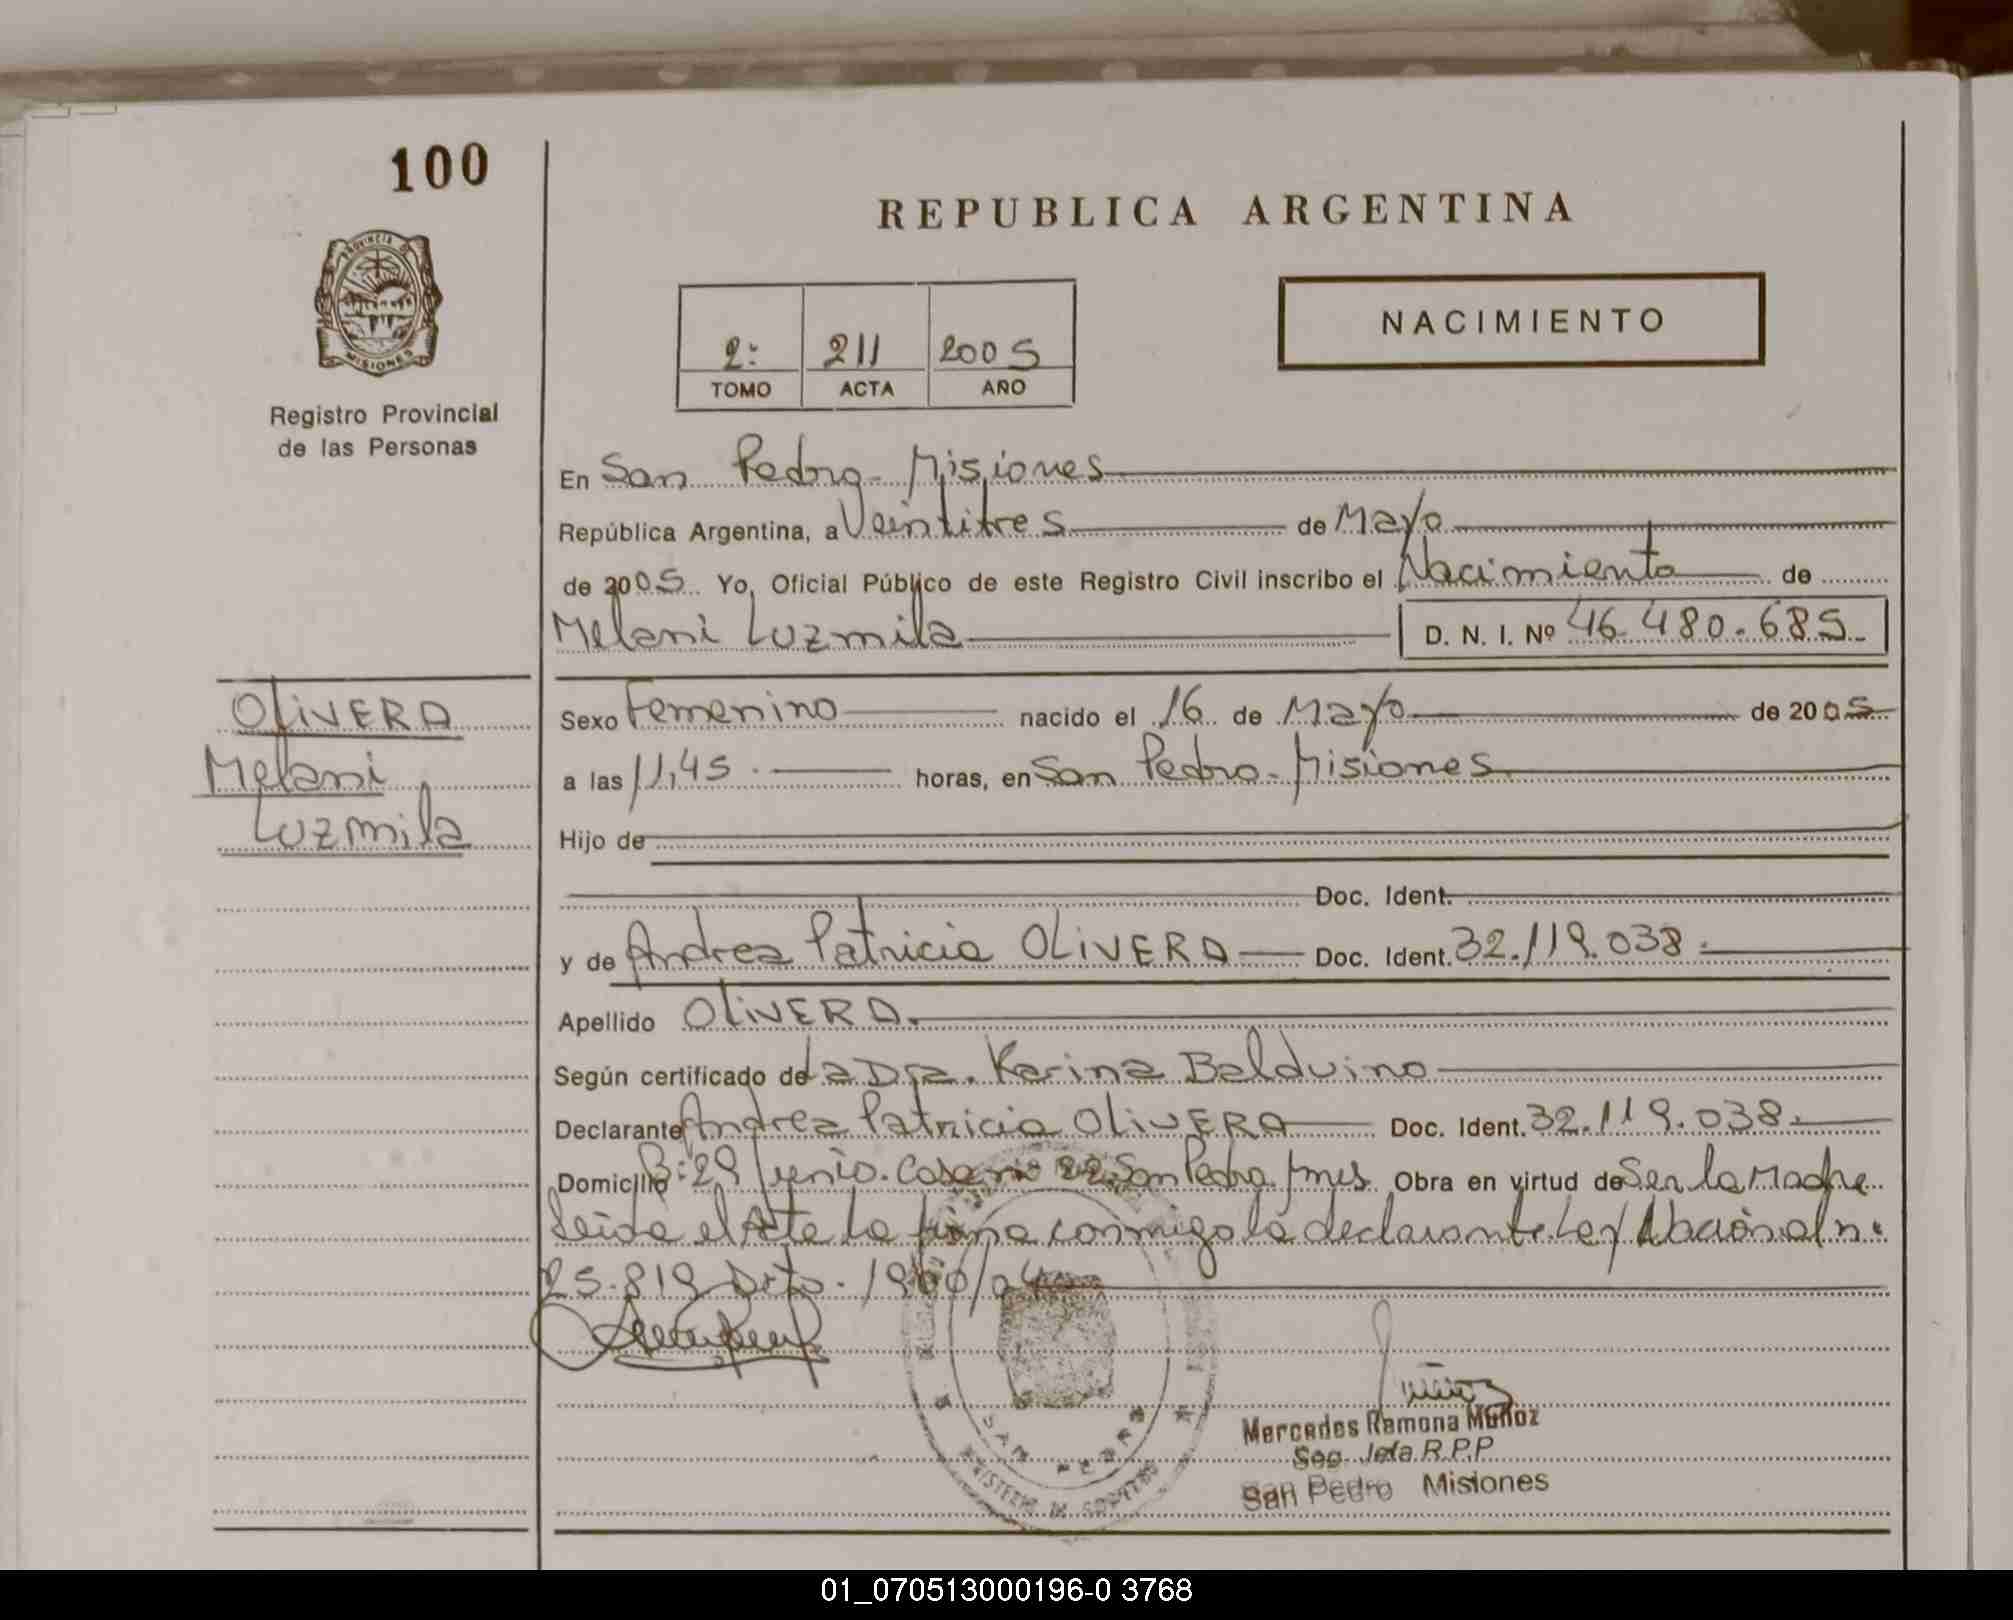 100
REPUBLICA ARGENTINA
PROVINCIA DE
MISIONES
NACIMIENTO
2: 211 2005
TOMO ACTA AÑO
Registro Provincial
de las Personas
En San Pedro - Misiones
República Argentina, a Veintitres de Mayo
de 2005 Yo, Oficial Público de este Registro Civil inscribo el Nacimiento de
Melani Luzmila D. N. I. Nº 46.480.685
OLIVERA
Melani
Luzmila
Sexo Femenino nacido el 16 de Mayo de 2005
a las 11,45 horas, en San Pedro - Misiones
Hijo de
Doc. Ident.
y de Andrea Patricia OLIVERA Doc. Ident. 32.119.038
Apellido OLIVERA.
Según certificado de La Dra. Karina Balduino
Declarante Andrea Patricia OLIVERA Doc. Ident. 32.119.038
Domicilio B: 29 Junio. Casa nº 22 San Pedro Mnes. Obra en virtud de Ser la Madre
Leida el Acta la firma conmigo la declarante. Ley Nacional n:
25.819 Dcto. 1900/04
SAN PEDRO
Muñoz
Mercedes Ramona Muñoz
Seg. Jefa R.P.P
San Pedro Misiones
01_070513000196-0 3768